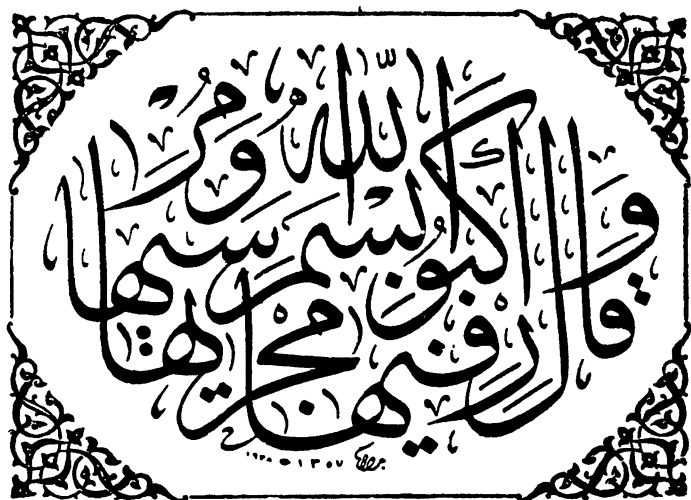 وقال اركبوا فيها بسم الله مجريها ومرسيها
١٣٥٧ ه ١٩٣٨